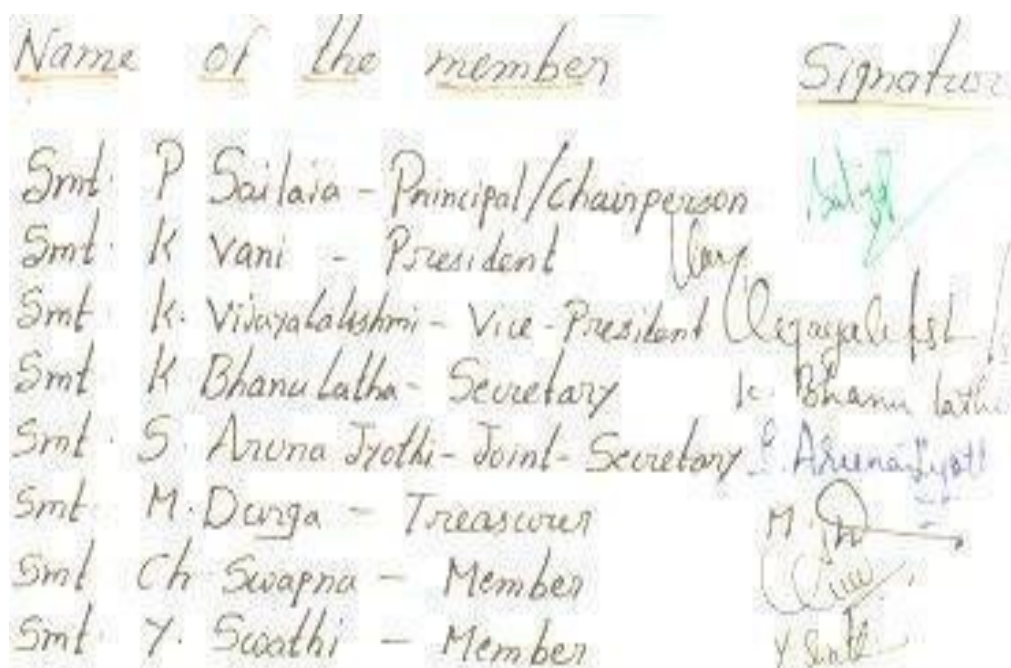 Name of the member Signature
Smt. P Sailaja - Principal/Chairperson
Smt. K Vani - President
Smt. K. Vijayalakshmi - Vice-President
Smt. K Bhanu Latha - Secretary K. Bhanu latha
Smt. S. Aruna Jyothi - Joint-Secretary S. Aruna Jyoti
Smt. M. Durga - Treasourer M.
Smt Ch Swapna - Member
Smt. Y. Swathi - Member Y